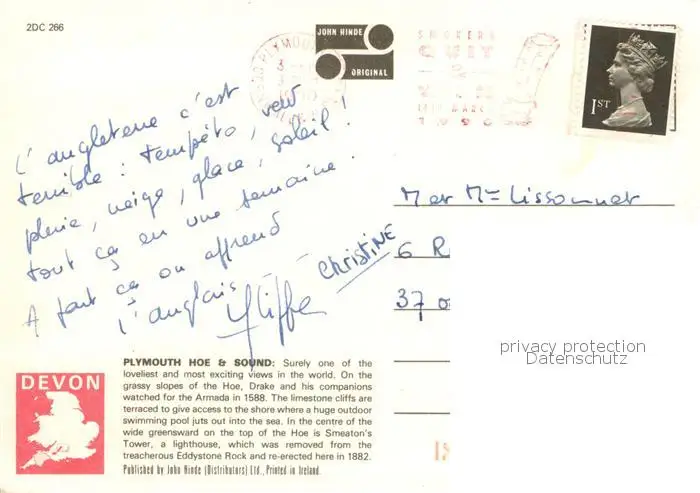 2DC 266
JOHN HINDE
ORIGINAL
PLYMOU
SMOKERS
QUIT
1990
1ST
L'angleterre c'est
terrible : tempête, vent
pluie, neige, glace, soleil !
tout ça en une semaine.
A part ça on apprend
l'anglais
Christine
M et Mme Lissonnet
6 R
37 0
privacy protection
Datenschutz
DEVON
PLYMOUTH HOE & SOUND: Surely one of the
loveliest and most exciting views in the world. On the
grassy slopes of the Hoe, Drake and his companions
watched for the Armada in 1588. The limestone cliffs are
terraced to give access to the shore where a huge outdoor
swimming pool juts out into the sea. In the centre of the
wide greensward on the top of the Hoe is Smeaton's
Tower, a lighthouse, which was removed from the
treacherous Eddystone Rock and re-erected here in 1882.
Published by John Hinde (Distributors) Ltd., Printed in Ireland.